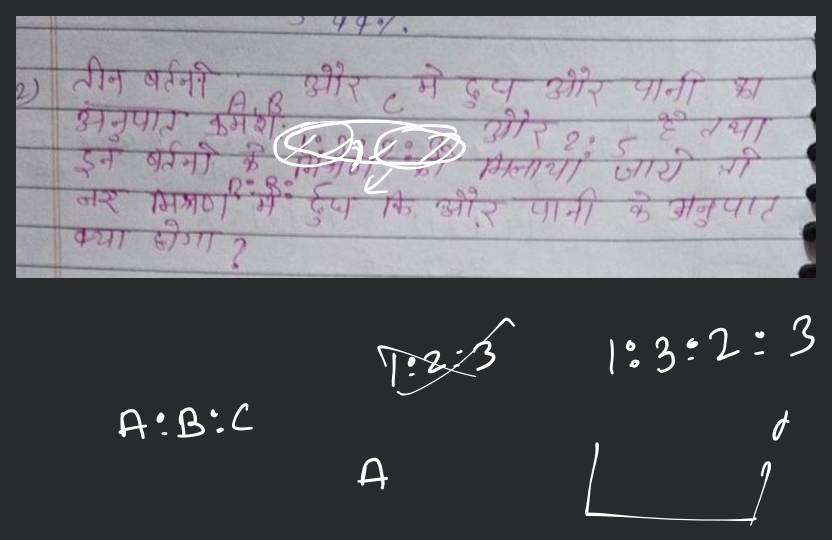 44%.
2) तीन बर्तनो A, B और C मे दुध और पानी का
अनुपात क्रमश: और 2:5 है तथा
इन बर्तनो के को मिलाया जाये तो
मिश्रण मे दुध कि और पानी के अनुपात
क्या होगा ?
1:2:3
1:3:2:3
A:B:C
A